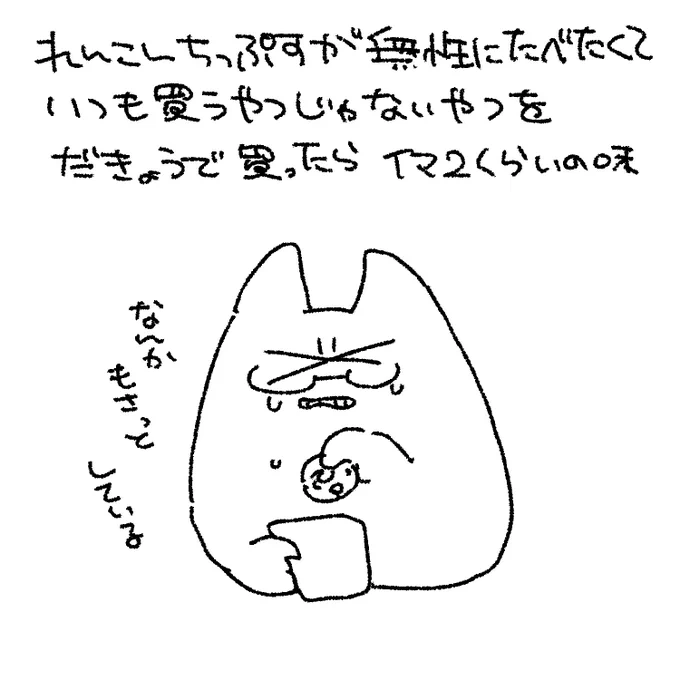 れんこんちっぷすが無性にたべたくて
いつも買うやつじゃないやつを
だきょうで買ったら イマ2くらいの味
なんか
もさっと
している